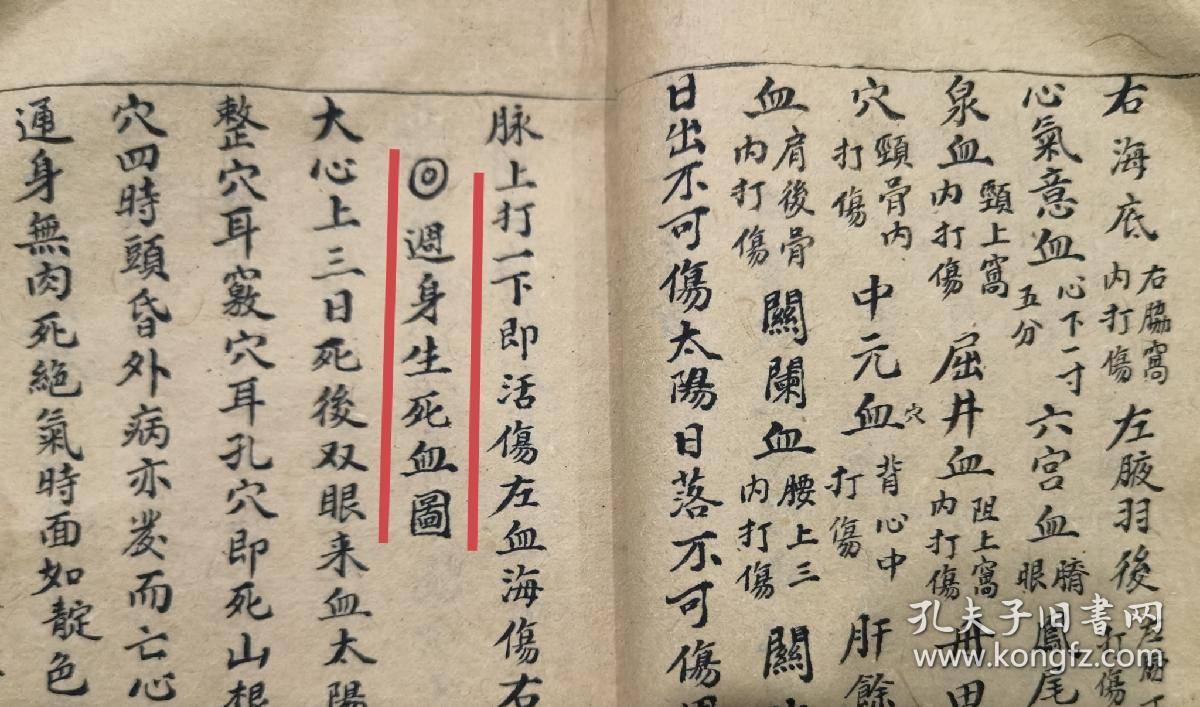 右海底 右脇窩内打傷 左腋羽後 打傷
心氣意血 心下一寸五分 六宮血 臍眼 鳳尾
泉血 頸上窩内打傷 屈井血 阻上窩内打傷 丹田
穴 頸骨内打傷 中元血穴 背心中打傷 肝餘
血 肩後骨内打傷 關闌血 腰上三内打傷 關
日出不可傷太陽日落不可傷
脉上打一下即活傷左血海傷右
◎週身生死血圖
大心上三日死後双眼来血太陽
整穴耳竅穴耳孔穴即死山根
穴四時頭昏外病亦發而亡心
通身無肉死絕氣時面如靛色
孔夫子旧书网
www.kongfz.com